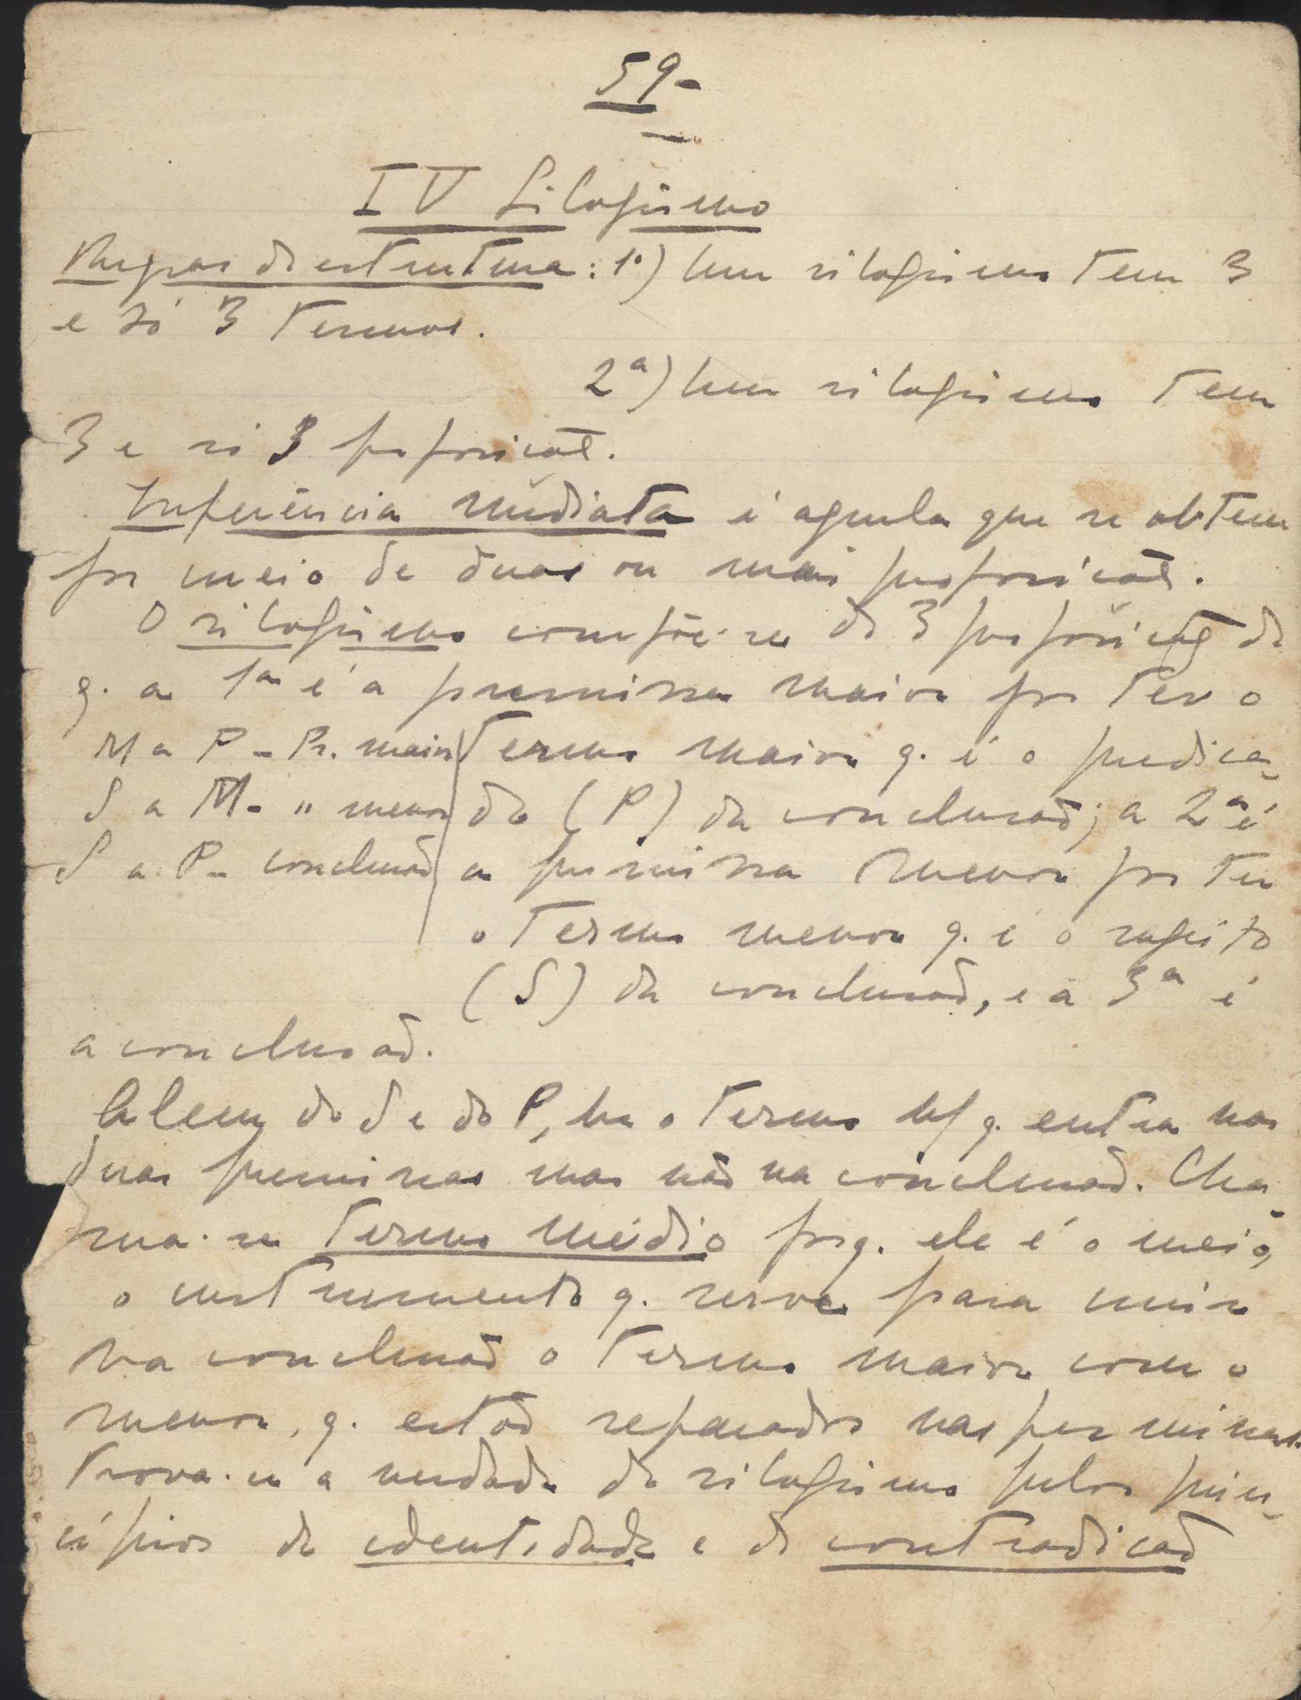 59-
IV Silogismo
Regras de estrutura: 1º) Um silogismo tem 3
e só 3 termos.
2ª) Um silogismo tem
3 e só 3 proposicões.
Inferência mediata é aquela que se obtem
por meio de duas ou mais proposicões.
O silogismo compõe-se de 3 proposicões de
q. a 1ª é a premissa maior por ter o
M a P - Pr. maior termo maior q. é o predica-
S a M - " menor do (P) da conclusão; a 2ª é
S a P - conclusão a premissa menor por ter
o termo menor q. é o sujeito
(S) da conclusão, e a 3ª é
a conclusão.
Alem do S e do P, ha o termo M q. entra nas
duas premissas mas não na conclusão. Cha-
ma-se termo médio porq. ele é o meio,
o instrumento q. serve para unir
na conclusão o termo maior com o
menor, q. estão separados nas premissas.
Prova-se a verdade do silogismo pelos prin-
cípios de identidade e de contradicão